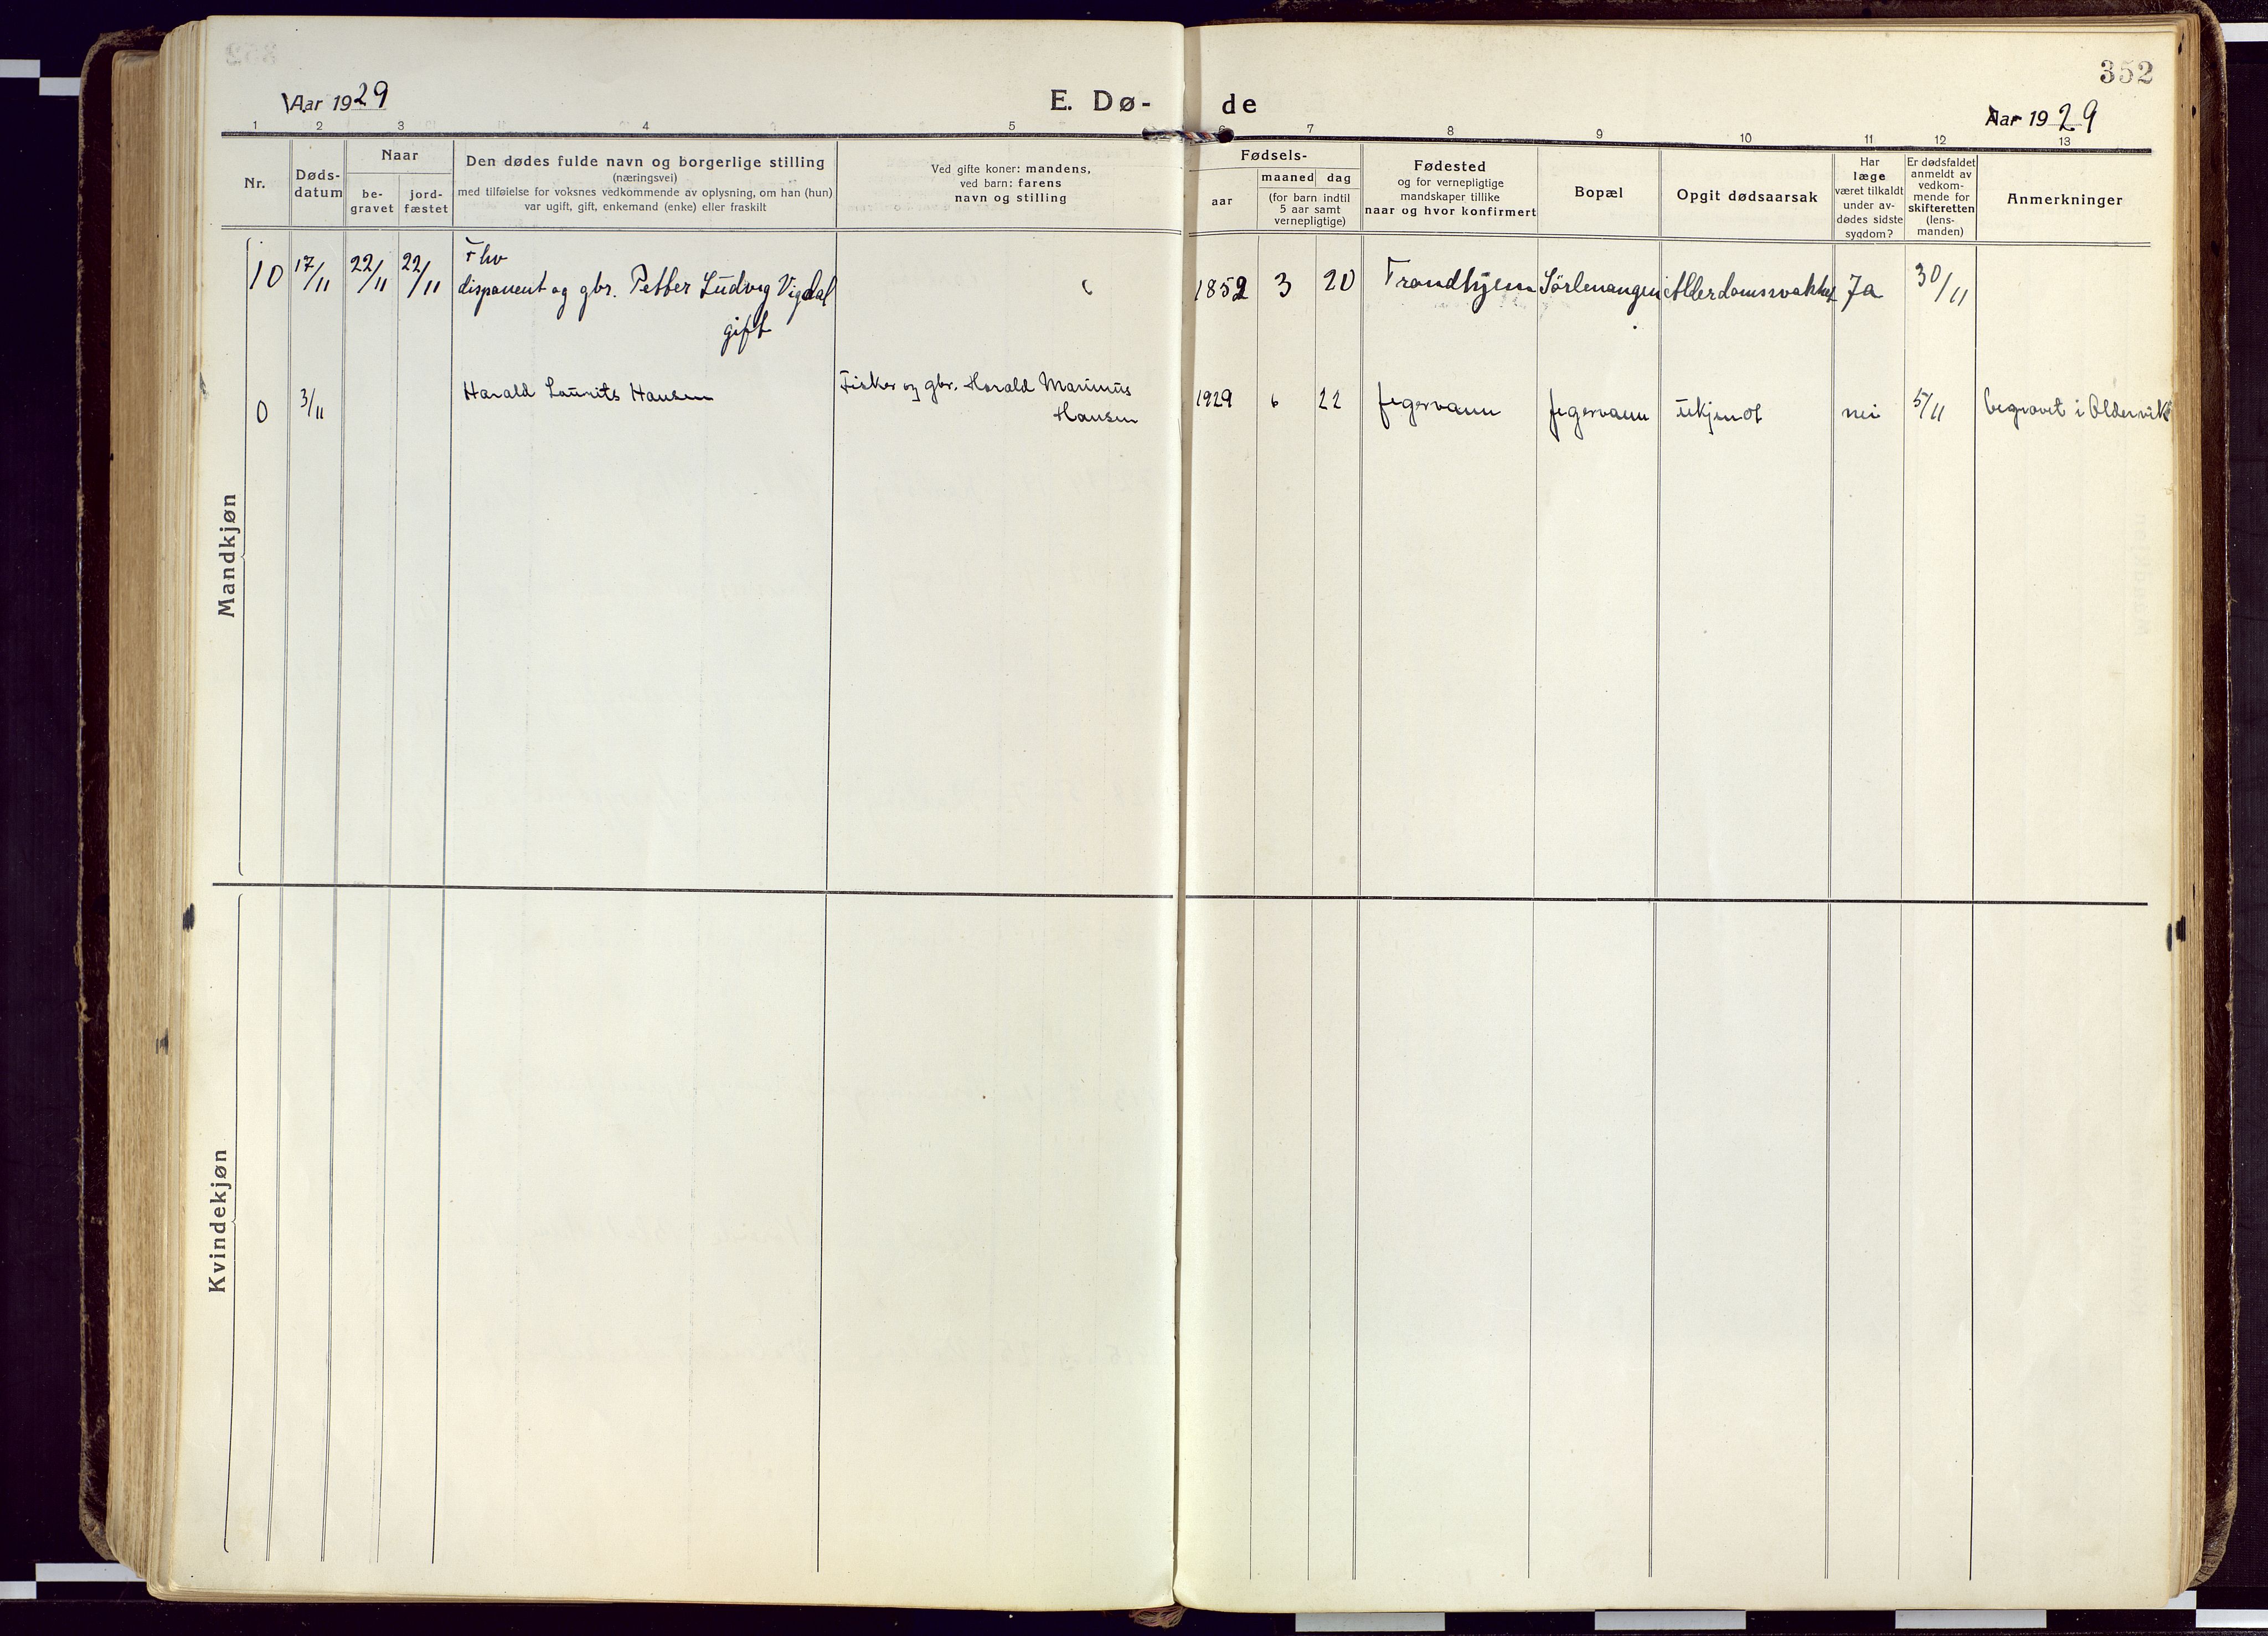 352
Aar 1929
E. Dø-
de
Aar 1929
1 2 3 4 5
6 7 8 9 10 11 12 13
Nr.
Døds-
datum
Naar
be-
gravet
jord-
fæstet
Den dødes fulde navn og borgerlige stilling
(næringsvei)
med tilføielse for voksnes vedkommende av oplysning, om han (hun)
var ugift, gift, enkemand (enke) eller fraskilt
Ved gifte koner: mandens,
ved barn: farens
navn og stilling
Fødsels-
aar
maaned dag
(for barn indtil
5 aar samt
vernepligtige)
Fødested
og for vernepligtige
mandskaper tillike
naar og hvor konfirmert
Bopæl
Opgit dødsaarsak
Har
læge
været tilkaldt
under av-
dødes sidste
sygdom?
Er dødsfaldet
anmeldt av
vedkom-
mende for
skifteretten
(lens-
manden)
Anmerkninger
Mandkjøn
Fhv
10 17/11 22/11 22/11 disponent og gbr. Petter Ludvig Vigdal 1852 3 20 Trondhjem Sörlenangen Alderdomssvakhet Ja 30/11
gift
0 3/11 Harald Laurits Hansen Fisker og gbr. Harald Marinius 1929 6 22 Jegervann Jegervann ukjendt nei 5/11 begravet i Oldervik
Hansen
Kvindekjøn